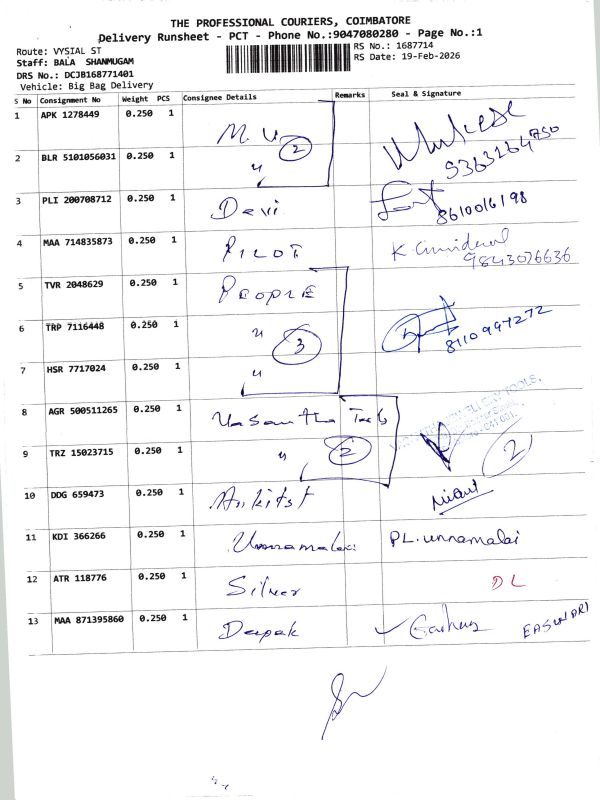 THE PROFESSIONAL COURIERS, COIMBATORE
Delivery Runsheet - PCT - Phone No.:9047080280 - Page No.:1
Route: VYSIAL ST
RS No.: 1687714
Staff: BALA SHANMUGAM
RS Date: 19-Feb-2026
DRS No.: DCJB168771401
Vehicle: Big Bag Delivery
S No Consignment No Weight PCS Consignee Details Remarks Seal & Signature
1 APK 1278449 0.250 1 M. U 2
9363264750
2 BLR 5101056031 0.250 1 "
3 PLI 200708712 0.250 1 Devi 8610016198
4 MAA 714835873 0.250 1 PILOT K
9843076636
5 TVR 2048629 0.250 1 PEOPLE
6 TRP 7116448 0.250 1 " 3 8110997272
7 HSR 7717024 0.250 1 "
8 AGR 500511265 0.250 1 Vasantha
9 TRZ 15023715 0.250 1 " 2 2
10 DDG 659473 0.250 1
11 KDI 366266 0.250 1 Unnamalai PL.unnamalai
12 ATR 118776 0.250 1 Silver DL
13 MAA 871395860 0.250 1 Deepak EASWARI